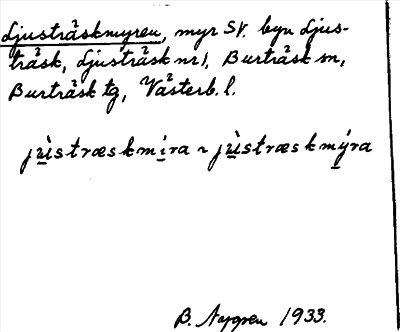 Ljusträskmyren, myr SV. byn Ljus-
träsk, Ljusträsk nr 1, Burträsk sn,
Burträsk tg, Västerb. l.
jùstræskmíra ~ jùstræskmýra
B. Nygren 1933.